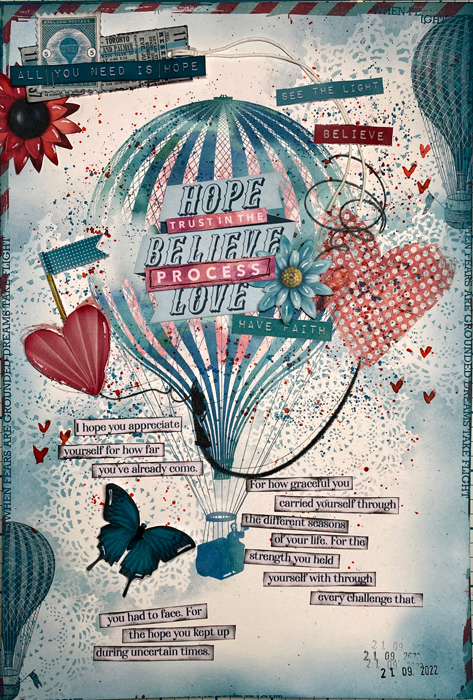 BALLOON POSTAGE
TORONTO
ALL YOU NEED IS HOPE
WHEN FE
LIGHT
SEE THE LIGHT
BELIEVE
HOPE
TRUST IN THE
BELIEVE
PROCESS
LOVE
HAVE FAITH
WHEN FEARS ARE GROUNDED DREAMS TAKE FLIGHT
I hope you appreciate
yourself for how far
you've already come.
For how graceful you
carried yourself through
the different seasons
of your life. For the
strength you held
yourself with through
every challenge that
you had to face. For
the hope you kept up
during uncertain times.
21 09.
21 09. 2022
21 09. 2022